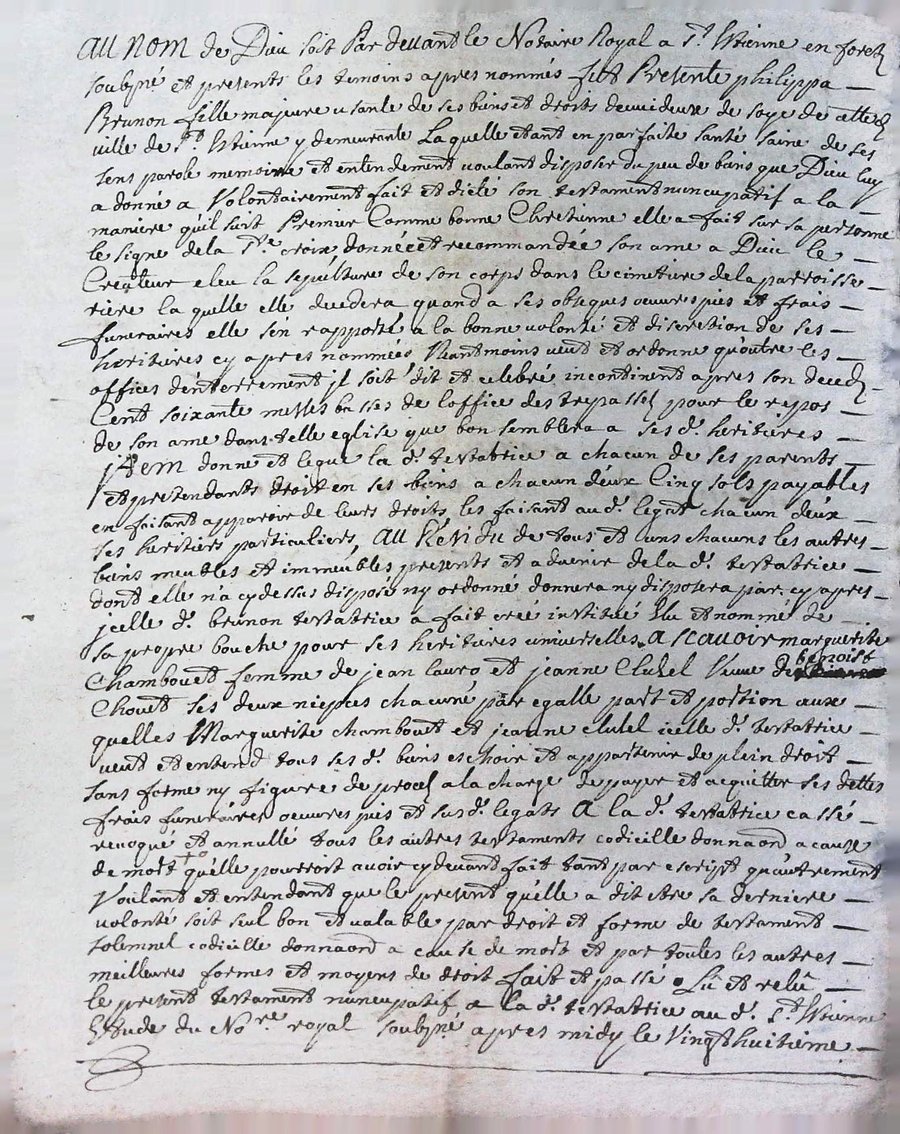 Au nom de Dieu soit Par devant le Notaire Royal a St. Etienne en forez
soubné et presents les temoins apres nommés fut Presente philippa
Brunon fille majeure usante de ses biens et droits devuideuse de soye de cette
ville de St. Etienne y demeurante Laquelle etant en parfaite santé saine de ses
sens parole memoire et entendement voulant disposer du peu de biens que Dieu luy
a donné a Volontairement fait et dicté son testament nuncupatif a la
maniere qu'il suit Premier Comme bonne Chretienne elle a fait sur sa personne
le signe de la Ste croix, donnée et recommandée son ame a Dieu le
Createur eleu la sepulture de son corps dans le cimetiere de la parroisse
riere la quelle elle decedera quand a ses obseques oeuvres pies et frais
funeraires elle s'en rapporte a la bonne volonté et discretion de ses
heritieres cy apres nommées Neantmoins veut et ordonne qu'outre les
offices d'enterrement jl soit dit et celebré incontinent apres son deceds
Cent soixante messes basses de l'office des trepassez pour le repos
de son ame dans telle eglise que bon semblera a ses d. heritieres
jtem donne et legue la d. testatrice a chacun de ses parents
et pretendants droit en ses biens a chacun d'eux Cinq sols payables
en faisant apparoir de leurs droits les faisant au d. legat chacun deux
ses heritiers particuliers, Au Residu de tous et uns chacuns les autres
biens meubles et immeubles presents et advenir de la d. testatrice
dont elle n'a cy dessus disposé ny ordonné donnera ny disposera par cy apres
jcelle d. brunon testatrice a fait creé institué Elu et nommé de
sa propre bouche pour ses heritieres universelles, a scavoir marguerite
Chambouet femme de jean lauro et jeanne Clutel Veuve de benoist
Chouet ses deux niepces chacune par egalle part et portion aux
quelles Marguerite chambouet et jeanne clutel icelle d. testatrice
veut et entend tous ses d. biens eschoir et appartenir de plein droit
sans forme ny figure de procez a la charge de payer et acquitter ses dettes
frais funeraires oeuvres pies et susd. legats A la d. testatrice cassé
revoqué et annullé tous les autres testaments codicille donnaon a cause
de mort qu'elle pourroit avoir cy devant fait tant par escript qu'autrement
Voulant et entendant que le present qu'elle a dit etre sa derniere
volonté soit seul bon et valable par droit et forme de testament
solemnel codicille donnaon a cause de mort et par toutes les autres
meilleures formes et moyens de droit fait et passé Lu et relû
le present testament nuncupatif a la d. testatrice au d. St. Etienne
Etude du Nore. royal soubné apres midy le Vingt huitieme